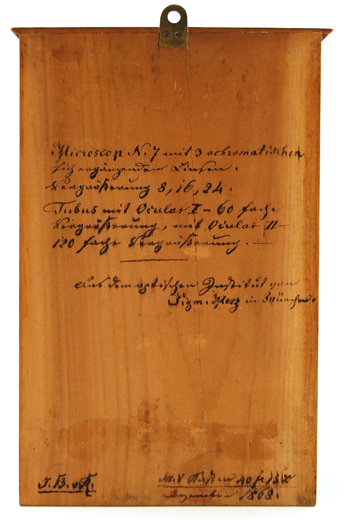 Microscop N. 7 mit 3 achromatischen
sich ergänzenden Linsen.
Vergrößerung 8, 16, 24.
Tubus mit Ocular I – 60 fache
Vergrößerung, mit Ocular II –
120 fache Vergrößerung. —
Aus dem optischen Institut von
Sigm. Merz in München.
J. B. v. R.
40 f 18 x
Dezember 1868.